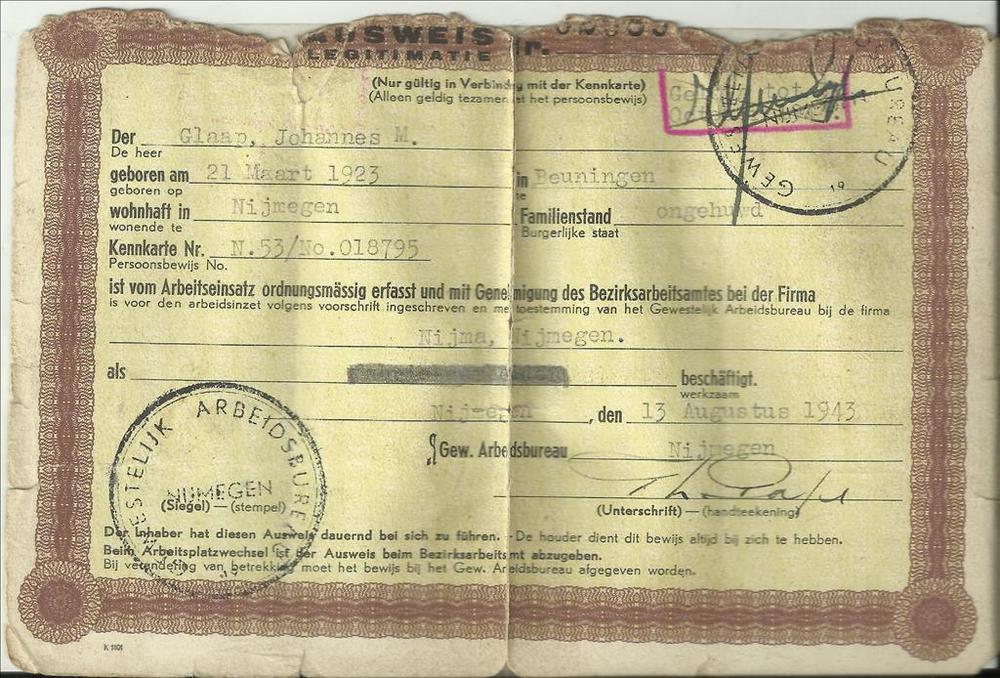 AUSWEIS
LEGITIMATIE
(Nur gültig in Verbindung mit der Kennkarte)
(Alleen geldig tezamen met het persoonsbewijs)
Der Glaap, Johannes M.
De heer
geboren am 21 Maart 1923 in Beuningen
geboren op te
wohnhaft in Nijmegen Familienstand ongehuwd
wonende te Burgerlijke staat
Kennkarte Nr. N.53/No.018795
Persoonsbewijs No.
ist vom Arbeitseinsatz ordnungsmässig erfasst und mit Genehmigung des Bezirksarbeitsamtes bei der Firma
is voor den arbeidsinzet volgens voorschrift ingeschreven en met toestemming van het Gewestelijk Arbeidsbureau bij de firma
Nijma, Nijmegen.
als beschäftigt.
werkzaam
Nijmegen, den 13 Augustus 1943
Gew. Arbeidsbureau Nijmegen
GEWESTELIJK ARBEIDSBUREAU
NIJMEGEN
(Siegel) — (stempel)
(Unterschrift) — (handteekening)
Der Inhaber hat diesen Ausweis dauernd bei sich zu führen. - De houder dient dit bewijs altijd bij zich te hebben.
Beim Arbeitsplatzwechsel ist der Ausweis beim Bezirksarbeitsamt abzugeben.
Bij verandering van betrekking moet het bewijs bij het Gew. Arbeidsbureau afgegeven worden.